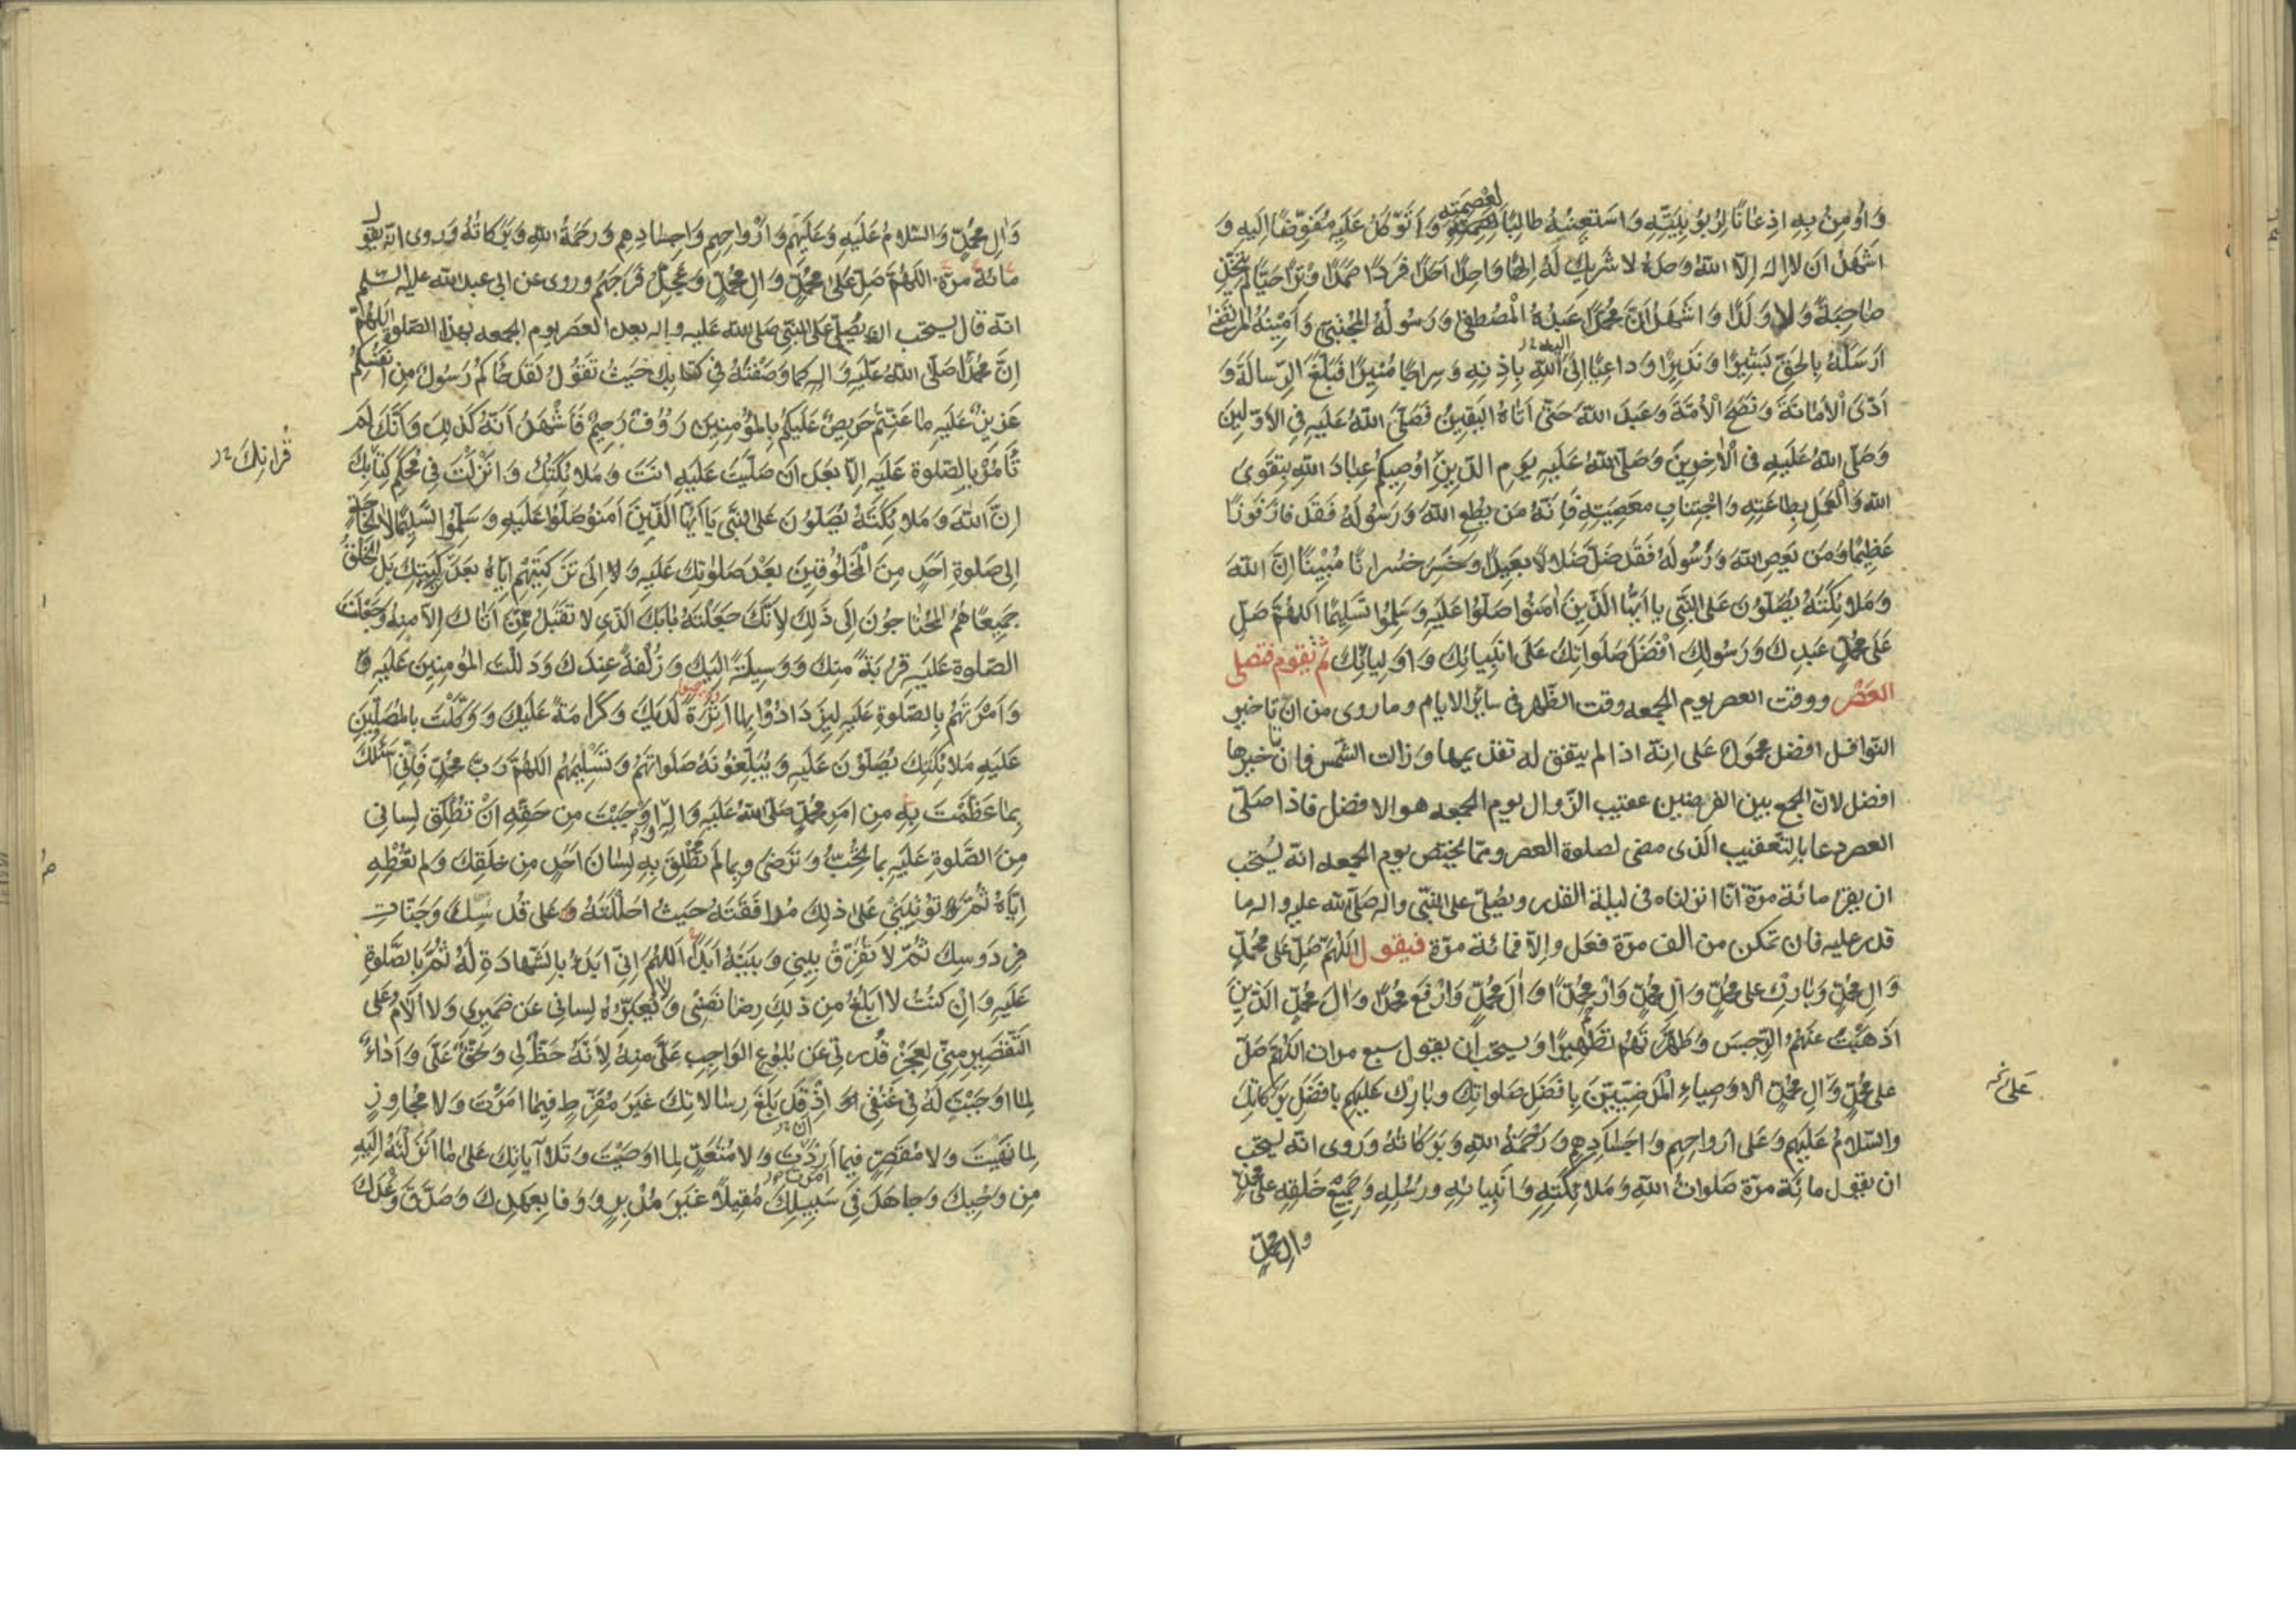 وَاُومِنُ بِهِ اِذعانًا لِرُبُوبِيَّتِهِ وَاستَعِينُهُ طالِبًا لعِصمَتِهِ وَاَتَوَكَّلُ عَلَيهِ مُفَوِّضًا اِلَيهِ وَ
اشهَدُ ان لا اله اِلّا اللهُ وَحدَهُ لا شَريكَ لَهُ اِلهًا واحِدًا اَحَدًا فَردًا صَمَدًا وِترًا لم يَتَّخِذ
صاحِبَةً وَلا وَلَدًا وَاشهَدُ اَنَّ مُحَمَّدًا عَبدُهُ المُصطَفى وَرَسُولُهُ المُجتَبى وَاَمِينُهُ المُرتَضى
اَرسَلَهُ بِالحَقِّ بَشيرًا وَنَذيرًا وَداعِيًا اِلَى اللهِ بِاِذنِهِ وَسِراجًا مُنيرًا فَبَلَّغَ الرِّسالَةَ وَ
اَدَّى الاَمانَةَ وَنَصَحَ الاُمَّةَ وَعَبَدَ اللهَ حَتّى اَتاهُ اليَقينُ فَصَلَّى اللهُ عَلَيهِ فِى الاَوَّلينَ
وَصَلَّى اللهُ عَلَيهِ فى الآخِرينَ وَصَلَّى اللهُ عَلَيهِ يَومَ الدّينِ اُوصيكُم عِبادَ اللهِ بِتَقوَى
اللهِ وَالعَمَلِ بِطاعَتِهِ وَاجتِنابِ مَعصِيَتِهِ فَاِنَّهُ مَن يُطِعِ اللهَ وَرَسُولَهُ فَقَد فازَ فَوزًا
عَظيمًا وَمَن يَعصِ اللهَ وَرَسُولَهُ فَقَد ضَلَّ ضَلالًا بَعيدًا وَخَسِرَ خُسرانًا مُبينًا اِنَّ اللهَ
وَمَلائِكَتَهُ يُصَلُّونَ عَلَى النَّبِىِّ يا اَيُّهَا الَّذينَ امَنُوا صَلُّوا عَلَيهِ وَسَلِّمُوا تَسليمًا اَللّهُمَّ صَلِّ
عَلى مُحَمَّدٍ عَبدِكَ وَرَسُولِكَ اَفضَلَ صَلَواتِكَ عَلى اَنبِيائِكَ وَاَولِيائِكَ ثم تقوم فتصلى
العَصْر ووقت العصر يوم الجمعه وقت الظّهر فى سائر الايام وما روى من انّ تاخير
النّوافل افضل محمول على انّه اذا لم يتفق له تقديمها وزالت الشّمس فانّ تاخيرها
افضل لانّ الجمع بين الفرضين عقيب الزّوال يوم الجمعه هو الافضل فاذا صلّى
العصر دعا بالتّعقيب الّذى مضى لصلوة العصر وممّا يختصّ يوم الجمعه انّه يُستحب
ان يقرا مائة مرّة انّا انزلناه فى ليلة القدر ويُصلّى على النّبى واله صلّى الله عليه واله ما
قدر عليه فان تمكن من الف مرّة فعل والّا فمائة مرّة فيقول اللّهُمَّ صَلِّ عَلى مُحَمَّدٍ
وَالِ مُحَمَّدٍ وَبارِك على مُحَمَّدٍ وَالِ مُحَمَّدٍ وَارحَم مُحَمَّدًا وَالَ مُحَمَّدٍ وَارفَع مُحَمَّدًا وَالَ مُحَمَّدٍ الَّذينَ
اَذهَبتَ عَنهُمُ الرِّجسَ وَطَهَّرتَهُم تَطهيرًا ويستحب ان يقول سبع مرات اللّهُمَّ صَلِّ
على مُحَمَّدٍ وَالِ مُحَمَّدٍ الاَوصِياءِ المَرضِيّينَ بِاَفضَلِ صَلَواتِكَ وَبارِك عَلَيهِم بِاَفضَلِ بَرَكاتِكَ
عَلى
والسَّلامُ عَلَيهِم وَعَلى اَرواحِهِم وَاَجسادِهِم وَرَحمَةُ اللهِ وَبَرَكاتُهُ وَروى انّه يستحب
ان يقول مائة مرّة صَلَواتُ اللهِ وَمَلائِكَتِهِ وَاَنبِيائِهِ ورُسُلِهِ وَجَميعِ خَلقِهِ على مُحَمَّدٍ
وال محمّدٍ
وَالِ مُحَمَّدٍ وَالسَّلامُ عَلَيهِ وَعَلَيهِم وَاَرواحِهِم وَاَجسادِهِم وَرَحمَةُ اللهِ وَبَرَكاتُهُ وَروى انّه يقول
مائة مرّة اللّهُمَّ صَلِّ عَلى مُحَمَّدٍ وَالِ مُحَمَّدٍ وَعَجِّل فَرَجَهُم وروى عن ابى عبد الله عليه السلم
انّه قال يستحب ان يُصلّى على النّبى صلى الله عليه واله بعد العصر يوم الجمعه بهذا الصّلوة اللّهُمَّ
اِنَّ مُحَمَّدًا صَلَّى اللهُ عَلَيهِ وَالِهِ كَما وَصَفتَهُ فى كتابِكَ حَيثُ تَقُولُ لَقَد جاءَكُم رَسُولٌ مِن اَنفُسِكُم
عَزيزٌ عَلَيهِ ما عَنِتُّم حَريصٌ عَلَيكُم بِالمُؤمِنينَ رَؤُفٌ رَحيمٌ فَاَشهَدُ اَنَّهُ كَذلِكَ وَاَنَّكَ لَم
تَأمُر بِالصَّلوةِ عَلَيهِ اِلّا بَعدَ اَن صَلَّيتَ عَلَيهِ اَنتَ وَمَلائِكَتُكَ وَاَنزَلتَ فى مُحكَمِ كِتابِكَ
قُرانِكَ
اِنَّ اللهَ وَمَلائِكَتَهُ يُصَلُّونَ عَلَى النَّبىِّ يا اَيُّهَا الَّذينَ امَنُوا صَلُّوا عَلَيهِ وَسَلِّمُوا تَسليمًا لا لِحاجَةٍ
اِلى صَلوةِ اَحَدٍ مِنَ المَخلُوقينَ بَعدَ صَلَواتِكَ عَلَيهِ وَلا اِلى تَزكِيَتِهِم اِيّاهُ بَعدَ تَزكِيَتِكَ بَلِ الخَلقُ
جَميعًا هُمُ المُحتاجُونَ اِلى ذلِكَ لِاَنَّكَ جَعَلتَهُ بابَكَ الَّذى لا تَقبَلُ مِمَّن اَتاكَ اِلّا مِنهُ وَجَعَلتَ
الصَّلوةَ عَلَيهِ قُربَةً مِنكَ وَوَسيلَةً اِلَيكَ وَزُلفَةً عِندَكَ وَدَلَلتَ المُؤمِنينَ عَلَيهِ
وَاَمَرتَهُم بِالصَّلوةِ عَلَيهِ لِيَزدادُوا بِها اُثرَةً لَدَيكَ وَكَرامَةً عَلَيكَ وَوَكَّلتَ بِالمُصَلّينَ
عَلَيهِ مَلائِكَتَكَ يُصَلُّونَ عَلَيهِ وَيُبَلِّغُونَهُ صَلَواتَهُم وَتَسليمَهُم اللّهُمَّ رَبَّ مُحَمَّدٍ فَاِنّى اَسئَلُكَ
بِما عَظَّمتَ بِهِ مِن اَمرِ مُحَمَّدٍ صَلَّى اللهُ عَلَيهِ وَالِهِ وَاَوجَبتَ مِن حَقِّهِ اَن تُطلِقَ لِسانى
مِنَ الصَّلوةِ عَلَيهِ بِما تُحِبُّ وَتَرضى وَبِما لَم تُطلِق بِهِ لِسانَ اَحَدٍ مِن خَلقِكَ وَلَم تُعطِهِ
اِيّاهُ ثُمَّ تُؤتِيَنى عَلى ذلِكَ مُرافَقَتَهُ حَيثُ اَحلَلتَهُ عَلى قُدسِكَ وَجَنّاتِ
فِردَوسِكَ ثُمَّ لا تُفَرِّق بَينى وَبَينَهُ اَبَدًا اَللّهُمَّ اِنّى اَبدَءُ بِالشَّهادَةِ لَهُ ثُمَّ بِالصَّلوةِ
عَلَيهِ وَاِن كُنتُ لا اَبلُغُ مِن ذلِكَ رِضا نَفسى وَلا يُعَبِّرُهُ لِسانى عَن ضَميرى وَلا اُلامُ عَلَى
التَّقصيرِ مِنّى لِعَجزِ قُدرَتى عَن بُلُوغِ الواجِبِ عَلَىَّ مِنهُ لِاَنَّهُ حَظٌّ لى وَحَقٌّ عَلَىَّ وَاَداءٌ
لِما اَوجَبتَ لَهُ فى عُنُقى اِذ قَد بَلَّغَ رِسالاتِكَ غَيرَ مُفَرِّطٍ فيما اَمَرتَ وَلا مُجاوِزٍ
لِما نَهَيتَ وَلا مُقَصِّرٍ فيما اَرَدتَ وَلا مُتَعَدٍّ لِما اَوصَيتَ وَتَلا آياتِكَ عَلى ما اَنزَلتَهُ اِلَيهِ
مِن وَحيِكَ وَجاهَدَ فى سَبيلِكَ مُقبِلًا غَيرَ مُدبِرٍ وَوَفا بِعَهدِكَ وَصَدَّقَ وَعدَكَ